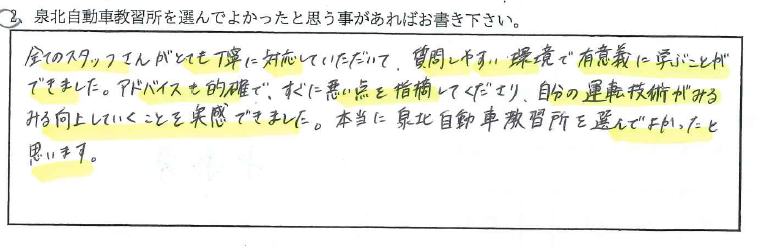 2、泉北自動車教習所を選んでよかったと思う事があればお書き下さい。
全てのスタッフさんがとても丁寧に対応していただいて、質問しやすい環境で有意義に学ぶことが
できました。アドバイスも的確で、すぐに悪い点を指摘してくださり、自分の運転技術がみる
みる向上していくことを実感できました。本当に泉北自動車教習所を選んでよかったと
思います。